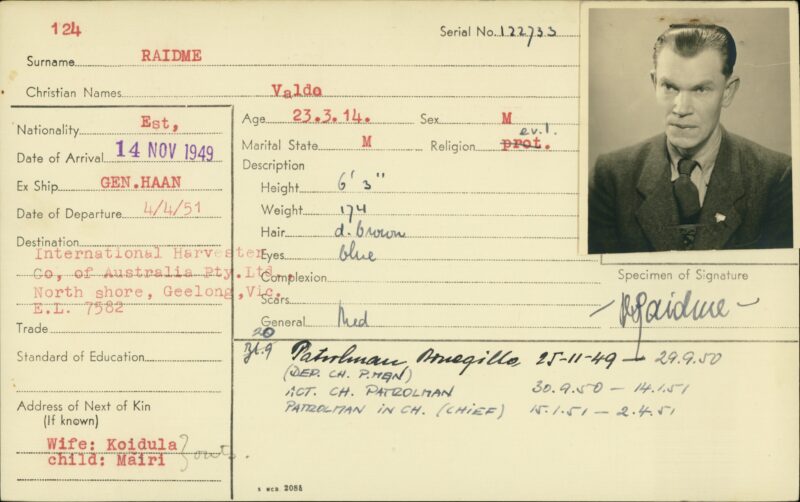 124
Serial No. 122733
Surname RAIDME
Christian Names Valdo
Nationality Est,
Date of Arrival 14 NOV 1949
Ex Ship GEN.HAAN
Date of Departure 4/4/51
Destination
International Harvester
Co, of Australia Pty.Ltd.,
North shore, Geelong, Vic.
E.L. 7582
Trade
Standard of Education
Address of Next of Kin
(If known)
Wife: Koidula
child: Mairi
Age 23.3.14. Sex M
Marital State M Religion prot. ev.l.
Description
Height 6' 3"
Weight 174
Hair d. brown
Eyes blue
Complexion
Scars
General Med
Specimen of Signature
Raidme
20
Bl.9 Patrolman Bonegilla 25-11-49 — 29.9.50
(DEP. CH. P.MEN)
ACT. CH. PATROLMAN 30.9.50 — 14.1.51
PATROLMAN IN CH. (CHIEF) 15.1.51 — 2.4.51
2088